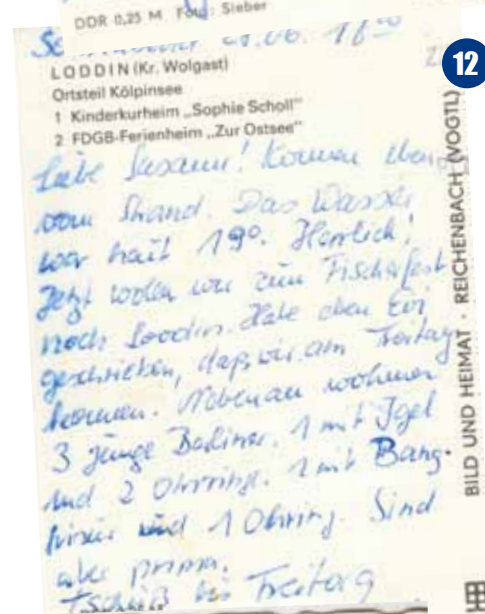 DDR 0,25 M Foto: Sieber
28.06. 18⁰⁰
12
LODDIN (Kr. Wolgast)
Ortsteil Kölpinsee
1 Kinderkurheim „Sophie Scholl"
2 FDGB-Ferienheim „Zur Ostsee"
Liebe Susann! Kommen eben
vom Strand. Das Wasser
war heut 19°. Herrlich!
Jetzt wollen wir zum Fischerfest
nach Loddin. Habe eben Evi
geschrieben, daß wir am Freitag
kommen. Nebenan wohnen
3 junge Berliner. 1 mit Igel
und 2 Ohrringe. 1 mit
und 1 Ohrring. Sind
aber prima.
Tschüß bis Freitag
BILD UND HEIMAT · REICHENBACH (VOGTL)